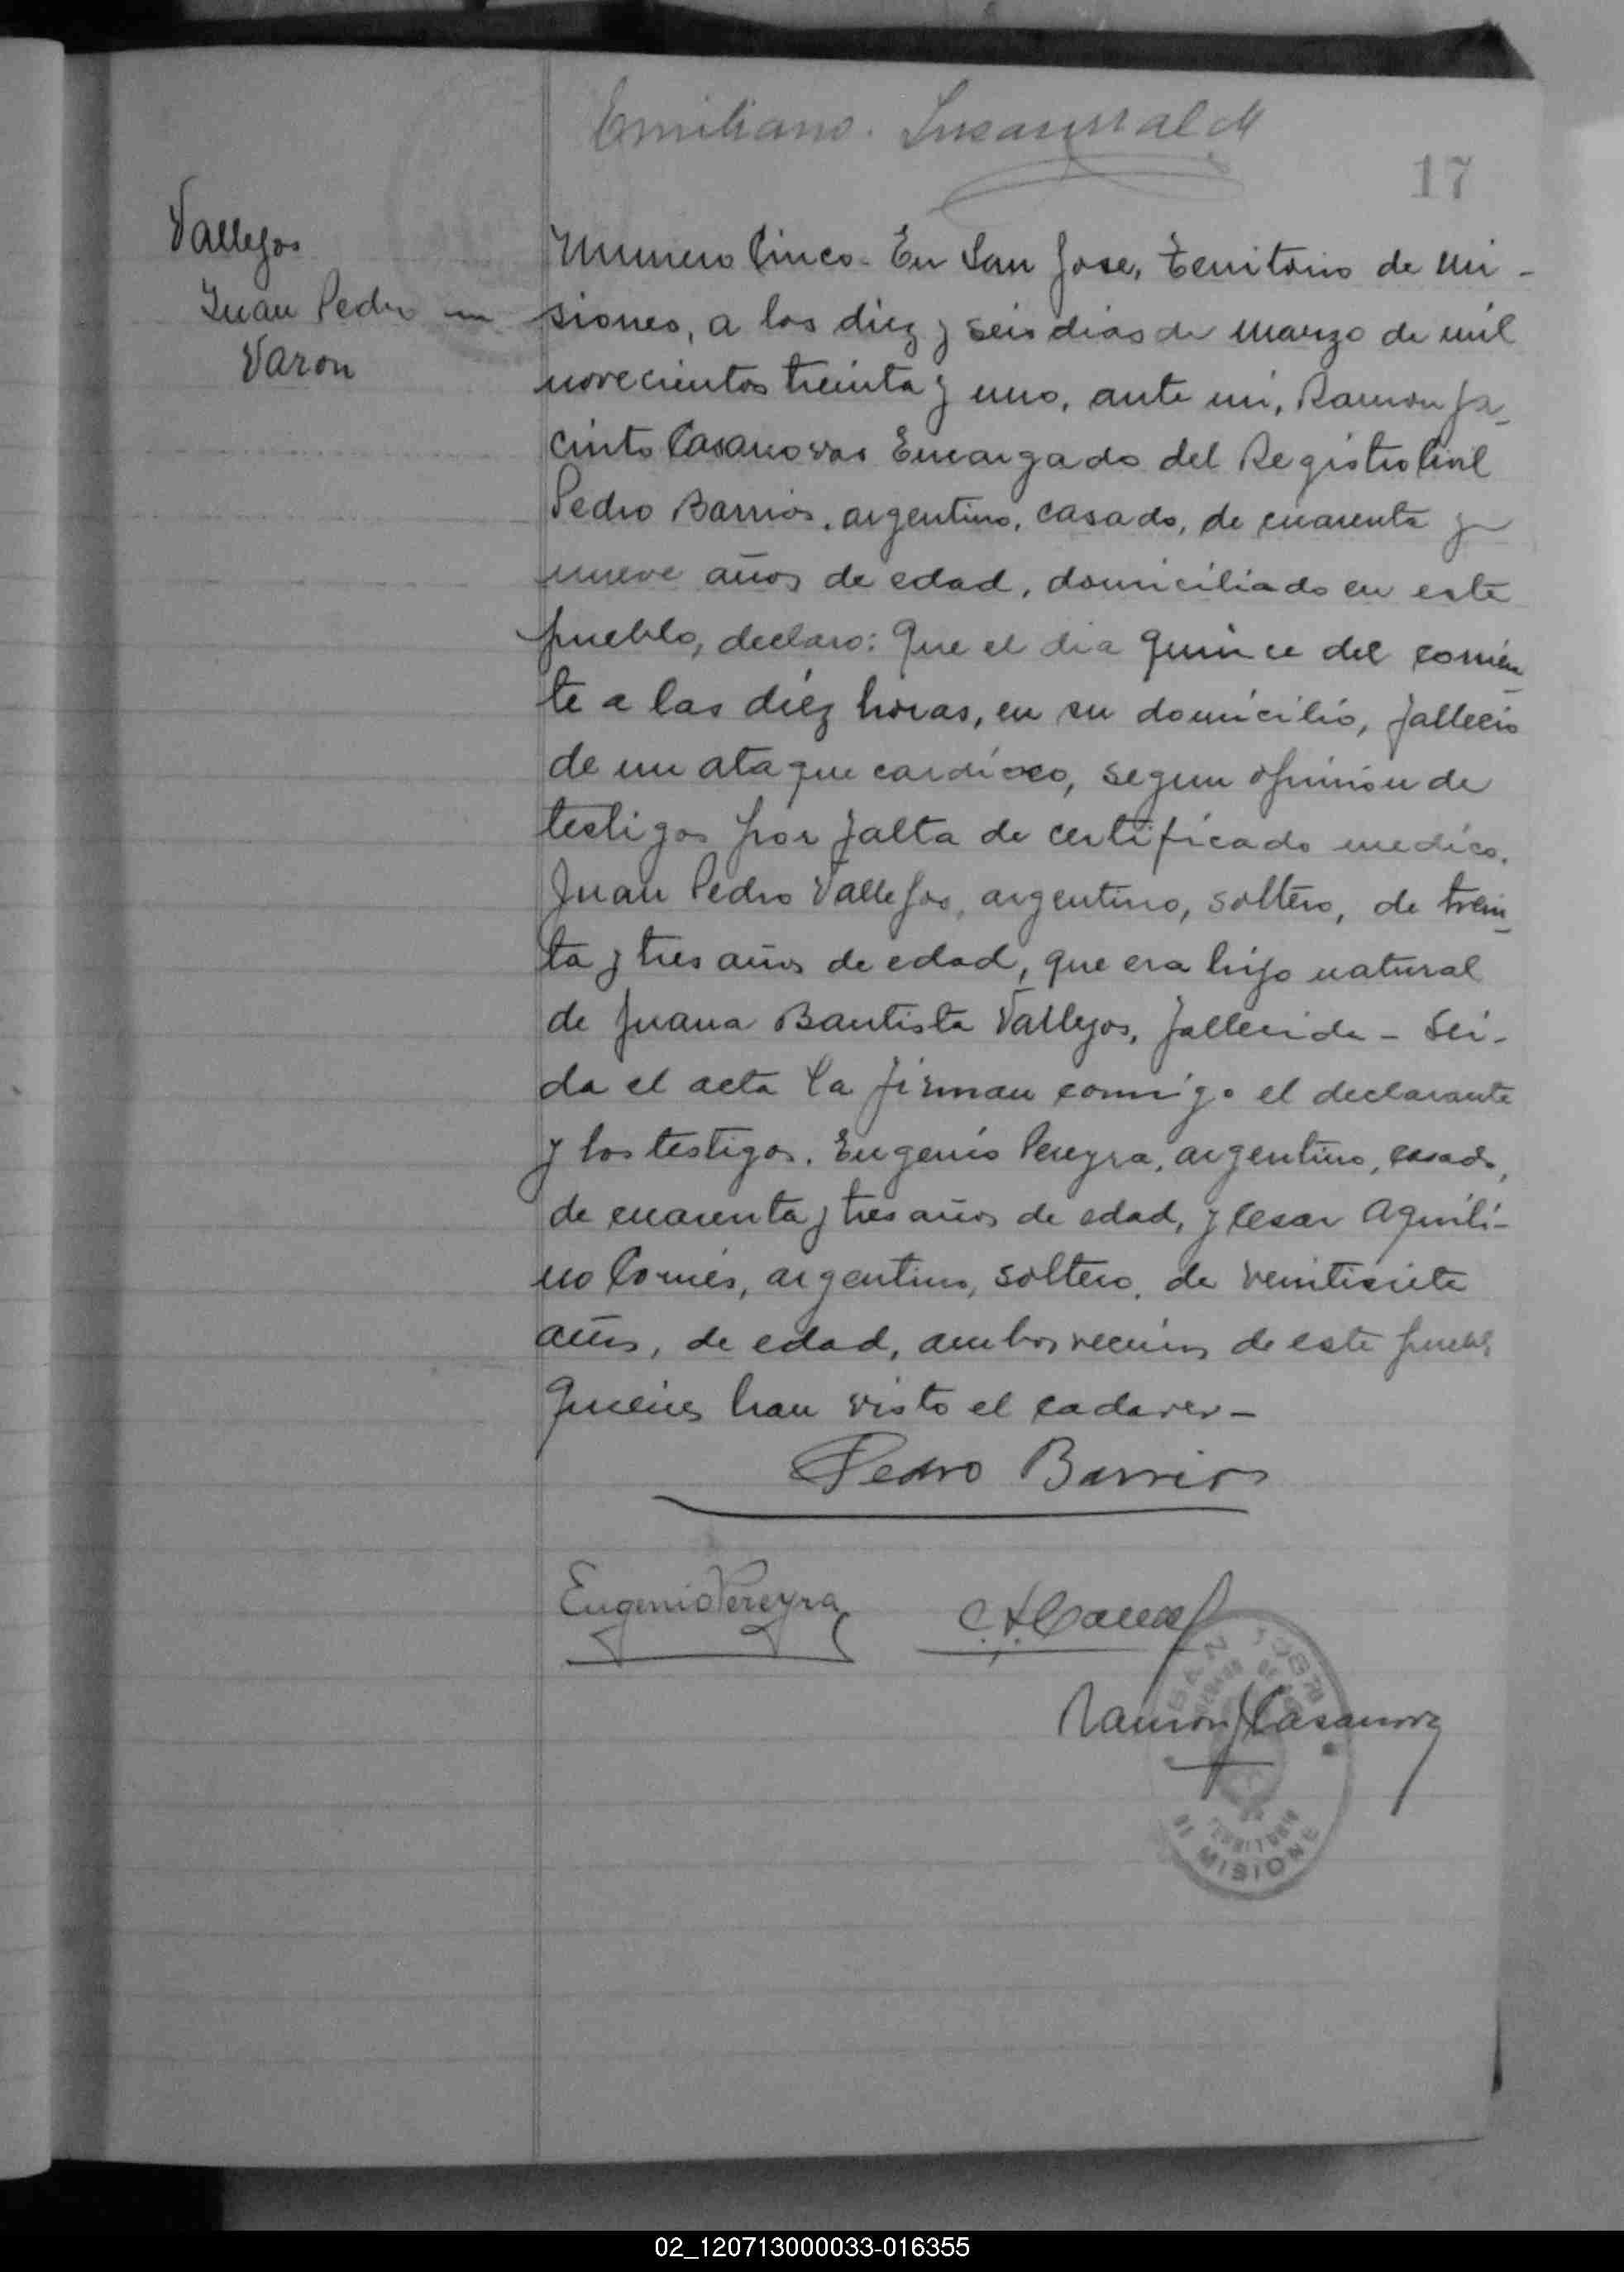 Emiliano. Insaurralde
17
Vallejos
Juan Pedro
Varon
Numero Cinco. En San Jose, Territorio de Mi-
siones, a los diez y seis dias de Marzo de mil
novecientos treinta y uno, ante mi, Ramon Ja-
cinto Casanovas Encargado del Registro Civil
Pedro Barrios, argentino, casado, de cuarenta y
nueve años de edad, domiciliado en este
pueblo, declaro: Que el dia quince del corrien-
te a las diéz horas, en su domicilio, fallecio
de un ataque cardíaco, segun opinión de
testigos por falta de certificado medico.
Juan Pedro Vallejos, argentino, soltero, de trein-
ta y tres años de edad, que era hijo natural
de Juana Bautista Vallejos, fallecida - Lei-
da el acta la firman conmigo el declarante
y los testigos. Eugenio Pereyra, argentino, casado,
de cuarenta y tres años de edad, y Cesar Aquili-
no Comes, argentino, soltero, de veintisiete
años, de edad, ambos vecinos de este pueblo
Quienes han visto el cadaver -
Pedro Barrios
Eugenio Pereyra
Ramon J Casanova
SAN JOSE
TERRITORIO
DE MISIONES
02_120713000033-016355